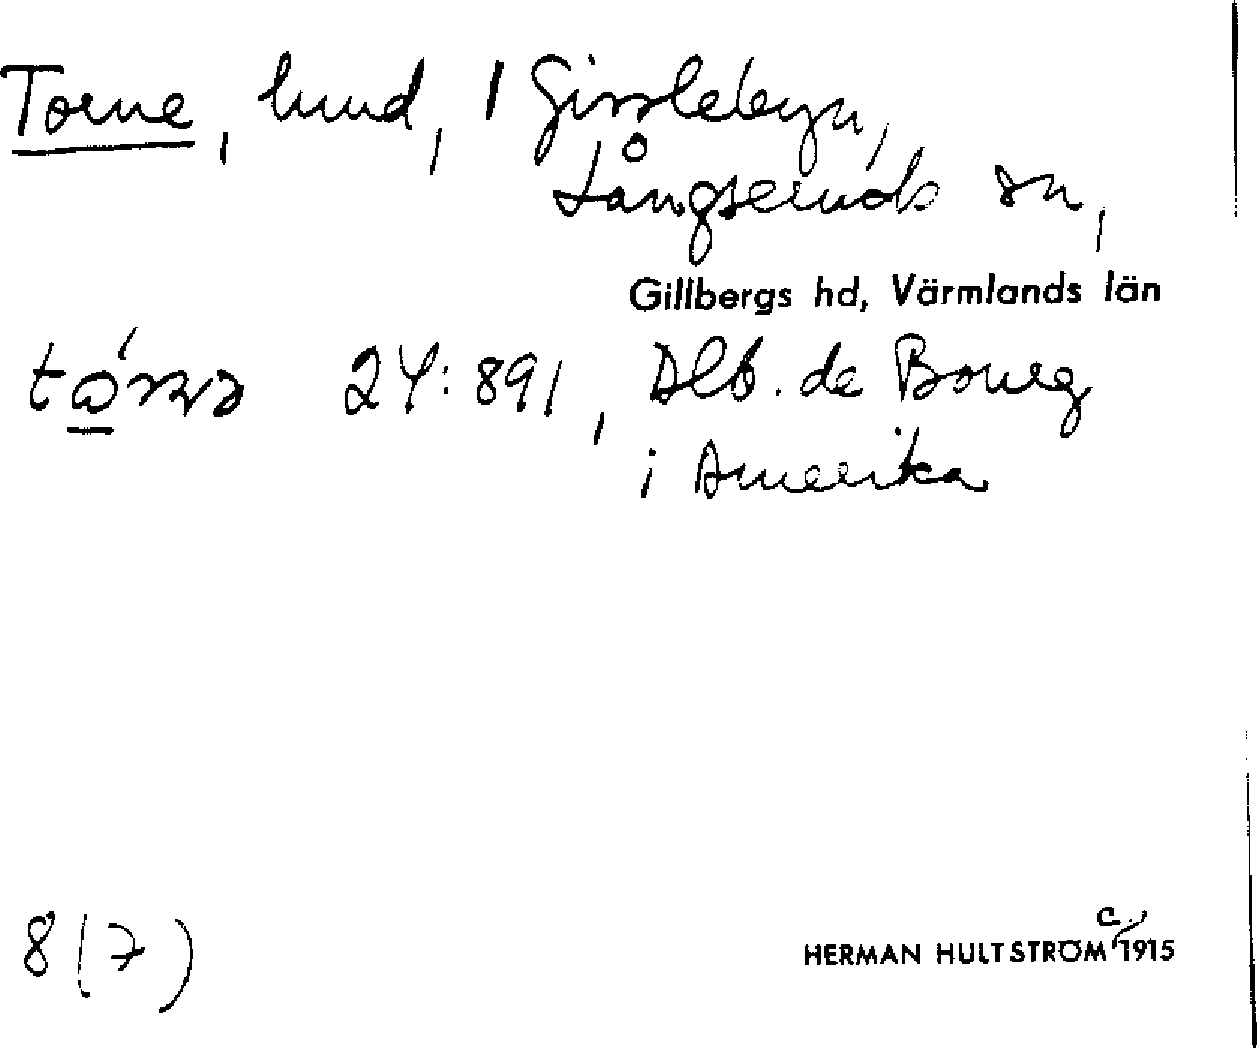 Torne, hund, 1 Gisslebyn,
Långseruds sn,
Gillbergs hd, Värmlands län
24:891, Dlb. de Boueg
i Amerika
8(7)
HERMAN HULTSTRÖM c. 1915